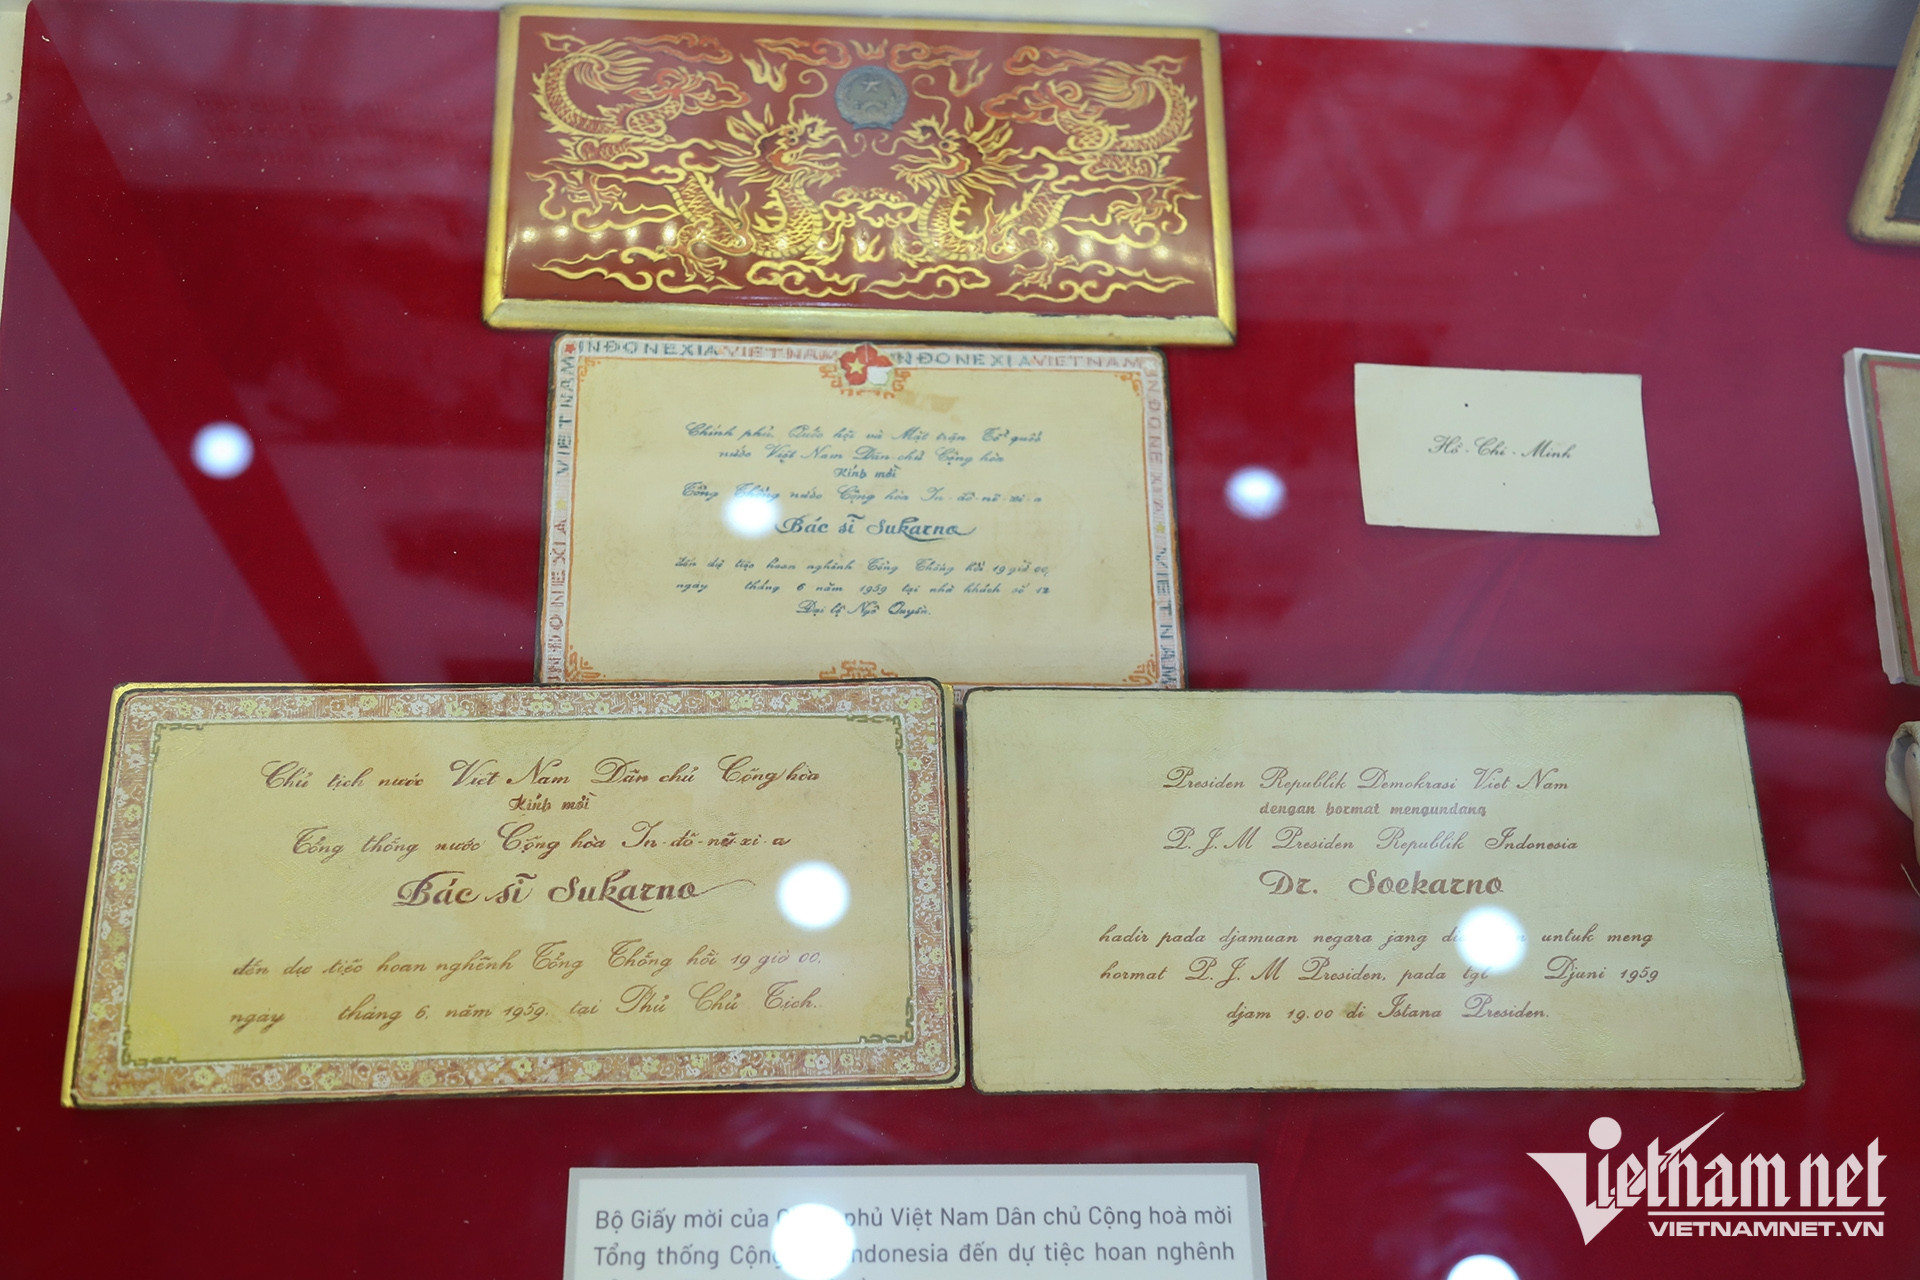 INDONEXIA VIETNAM INDONEXIA VIETNAM
INDONEXIA VIETNAM
INDONEXIA VIETNAM
Chính phủ, Quốc hội và Mặt trận Tổ quốc
nước Việt Nam Dân chủ Cộng hòa
Kính mời
Tổng Thống nước Cộng hòa In-đô-nê-xi-a
Bác sĩ Sukarno
đến dự tiệc hoan nghênh Tổng Thống hồi 19 giờ 00,
ngày tháng 6 năm 1959 tại nhà khách số 12
Đại lộ Ngô Quyền.
Hồ-Chí-Minh
Chủ tịch nước Việt Nam Dân chủ Cộng hòa
Kính mời
Tổng thống nước Cộng hòa In-đô-nê-xi-a
Bác sĩ Sukarno
đến dự tiệc hoan nghênh Tổng Thống hồi 19 giờ 00,
ngày tháng 6. năm 1959. tại Phủ Chủ Tịch.
Presiden Republik Demokrasi Viet Nam
dengan hormat mengundang
P.J.M Presiden Republik Indonesia
Dr. Soekarno
hadir pada djamuan negara jang untuk meng
hormat P.J.M Presiden, pada Djuni 1959
djam 19.00 di Istana Presiden.
Bộ Giấy mời của phủ Việt Nam Dân chủ Cộng hoà mời
Tổng thống Cộng Indonesia đến dự tiệc hoan nghênh
Vietnamnet
VIETNAMNET.VN